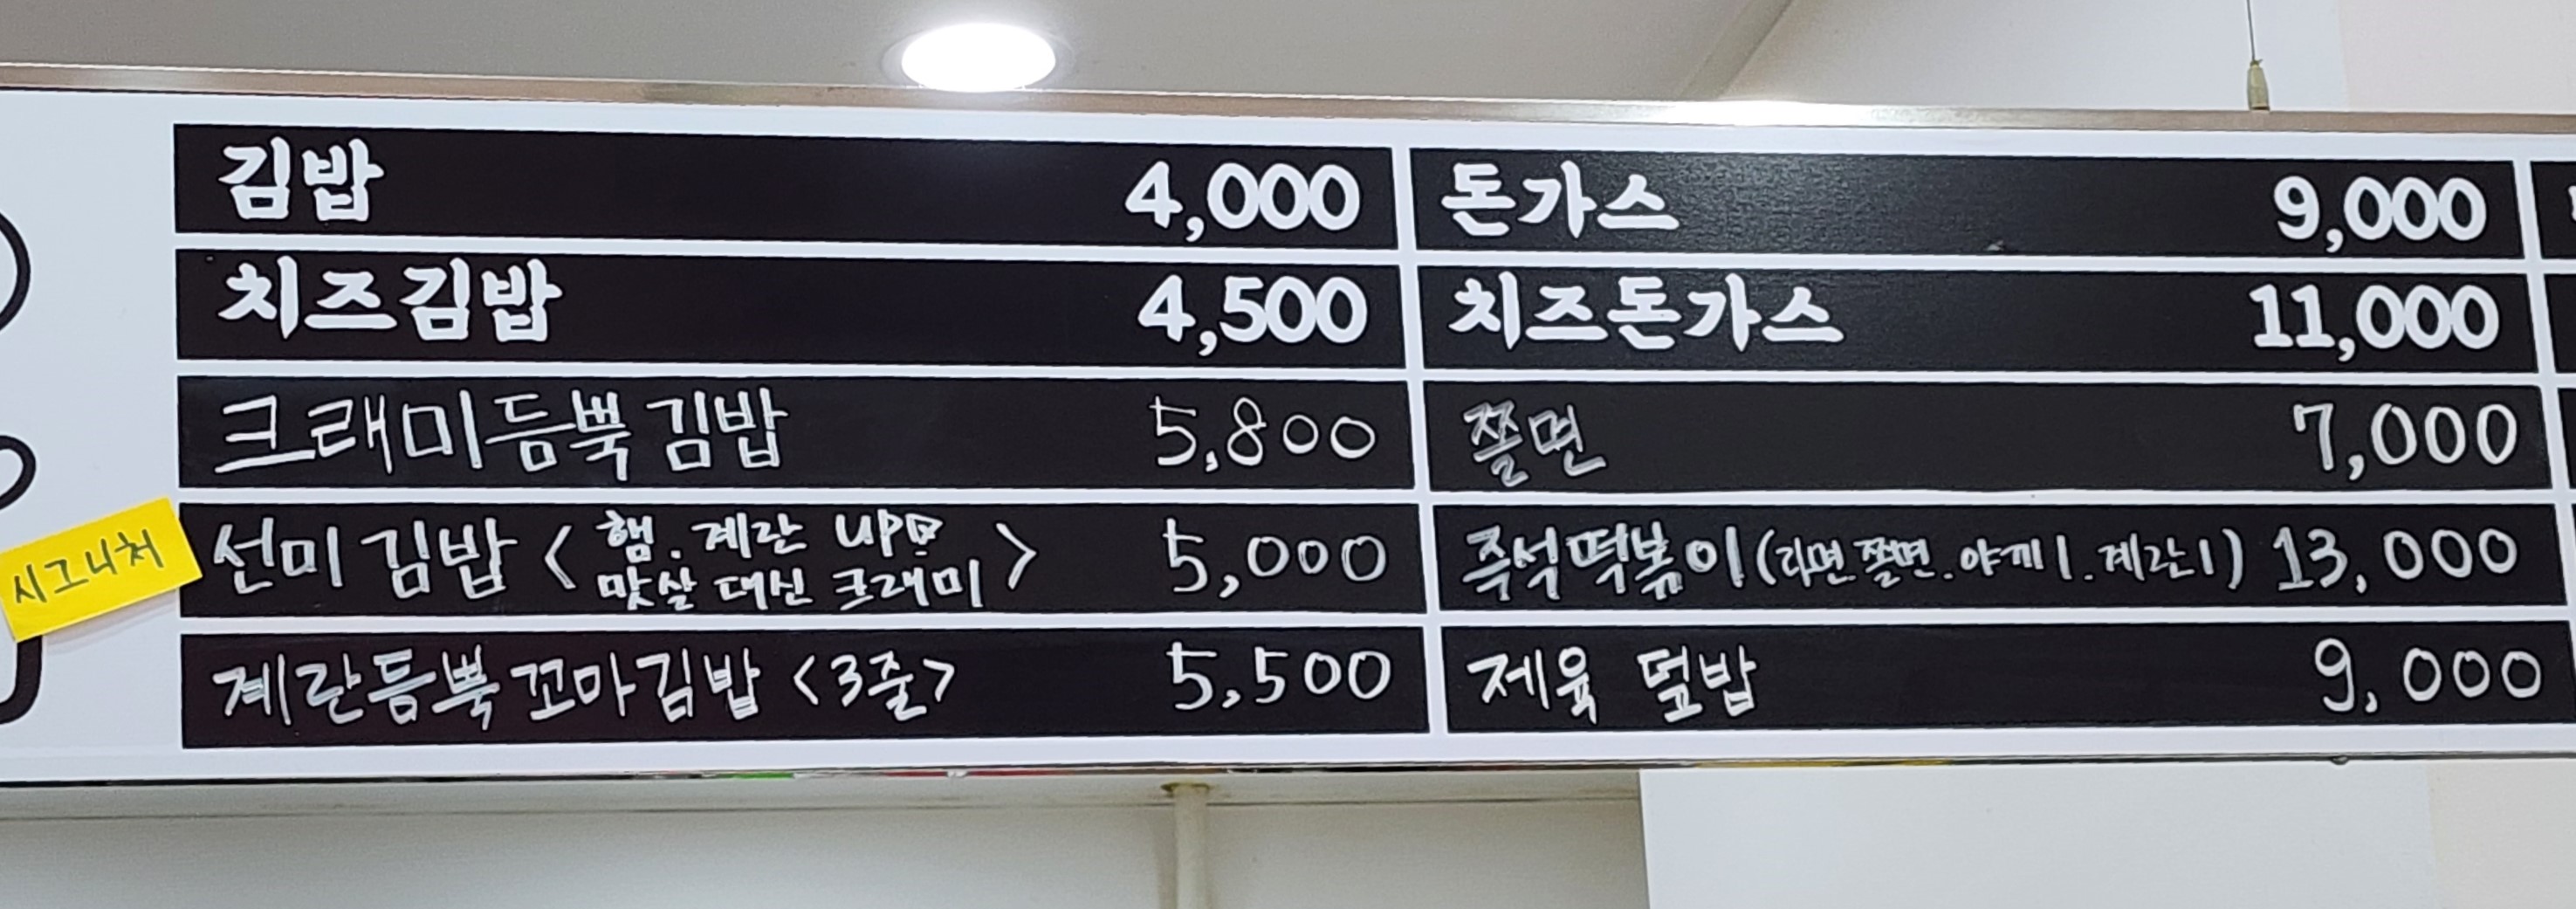 김밥 4,000
치즈김밥 4,500
크래미듬뿍김밥 5,800
시그니처
선미김밥 < 햄.계란 UP
맛살 대신 크래미 > 5,000
계란듬뿍꼬마김밥 <3줄> 5,500
돈가스 9,000
치즈돈가스 11,000
쫄면 7,000
즉석떡볶이(라면.쫄면.야끼1.계란1) 13,000
제육 덮밥 9,000